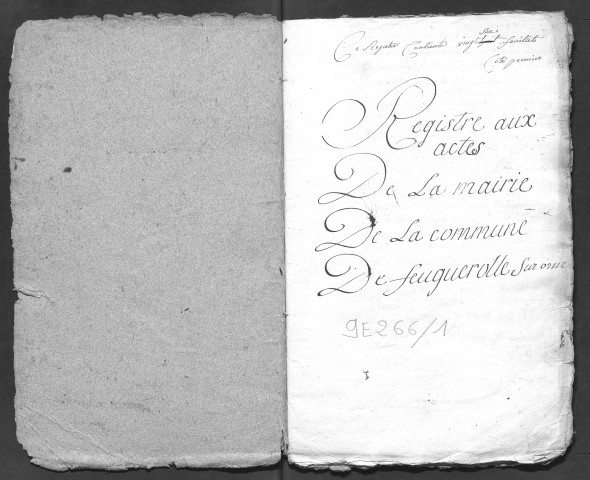 Ce Registre Contient vingt six feuillets
Coté premier
Registre aux
actes
De La mairie
De La commune
De feuguerolle Sur orne
9E266/1